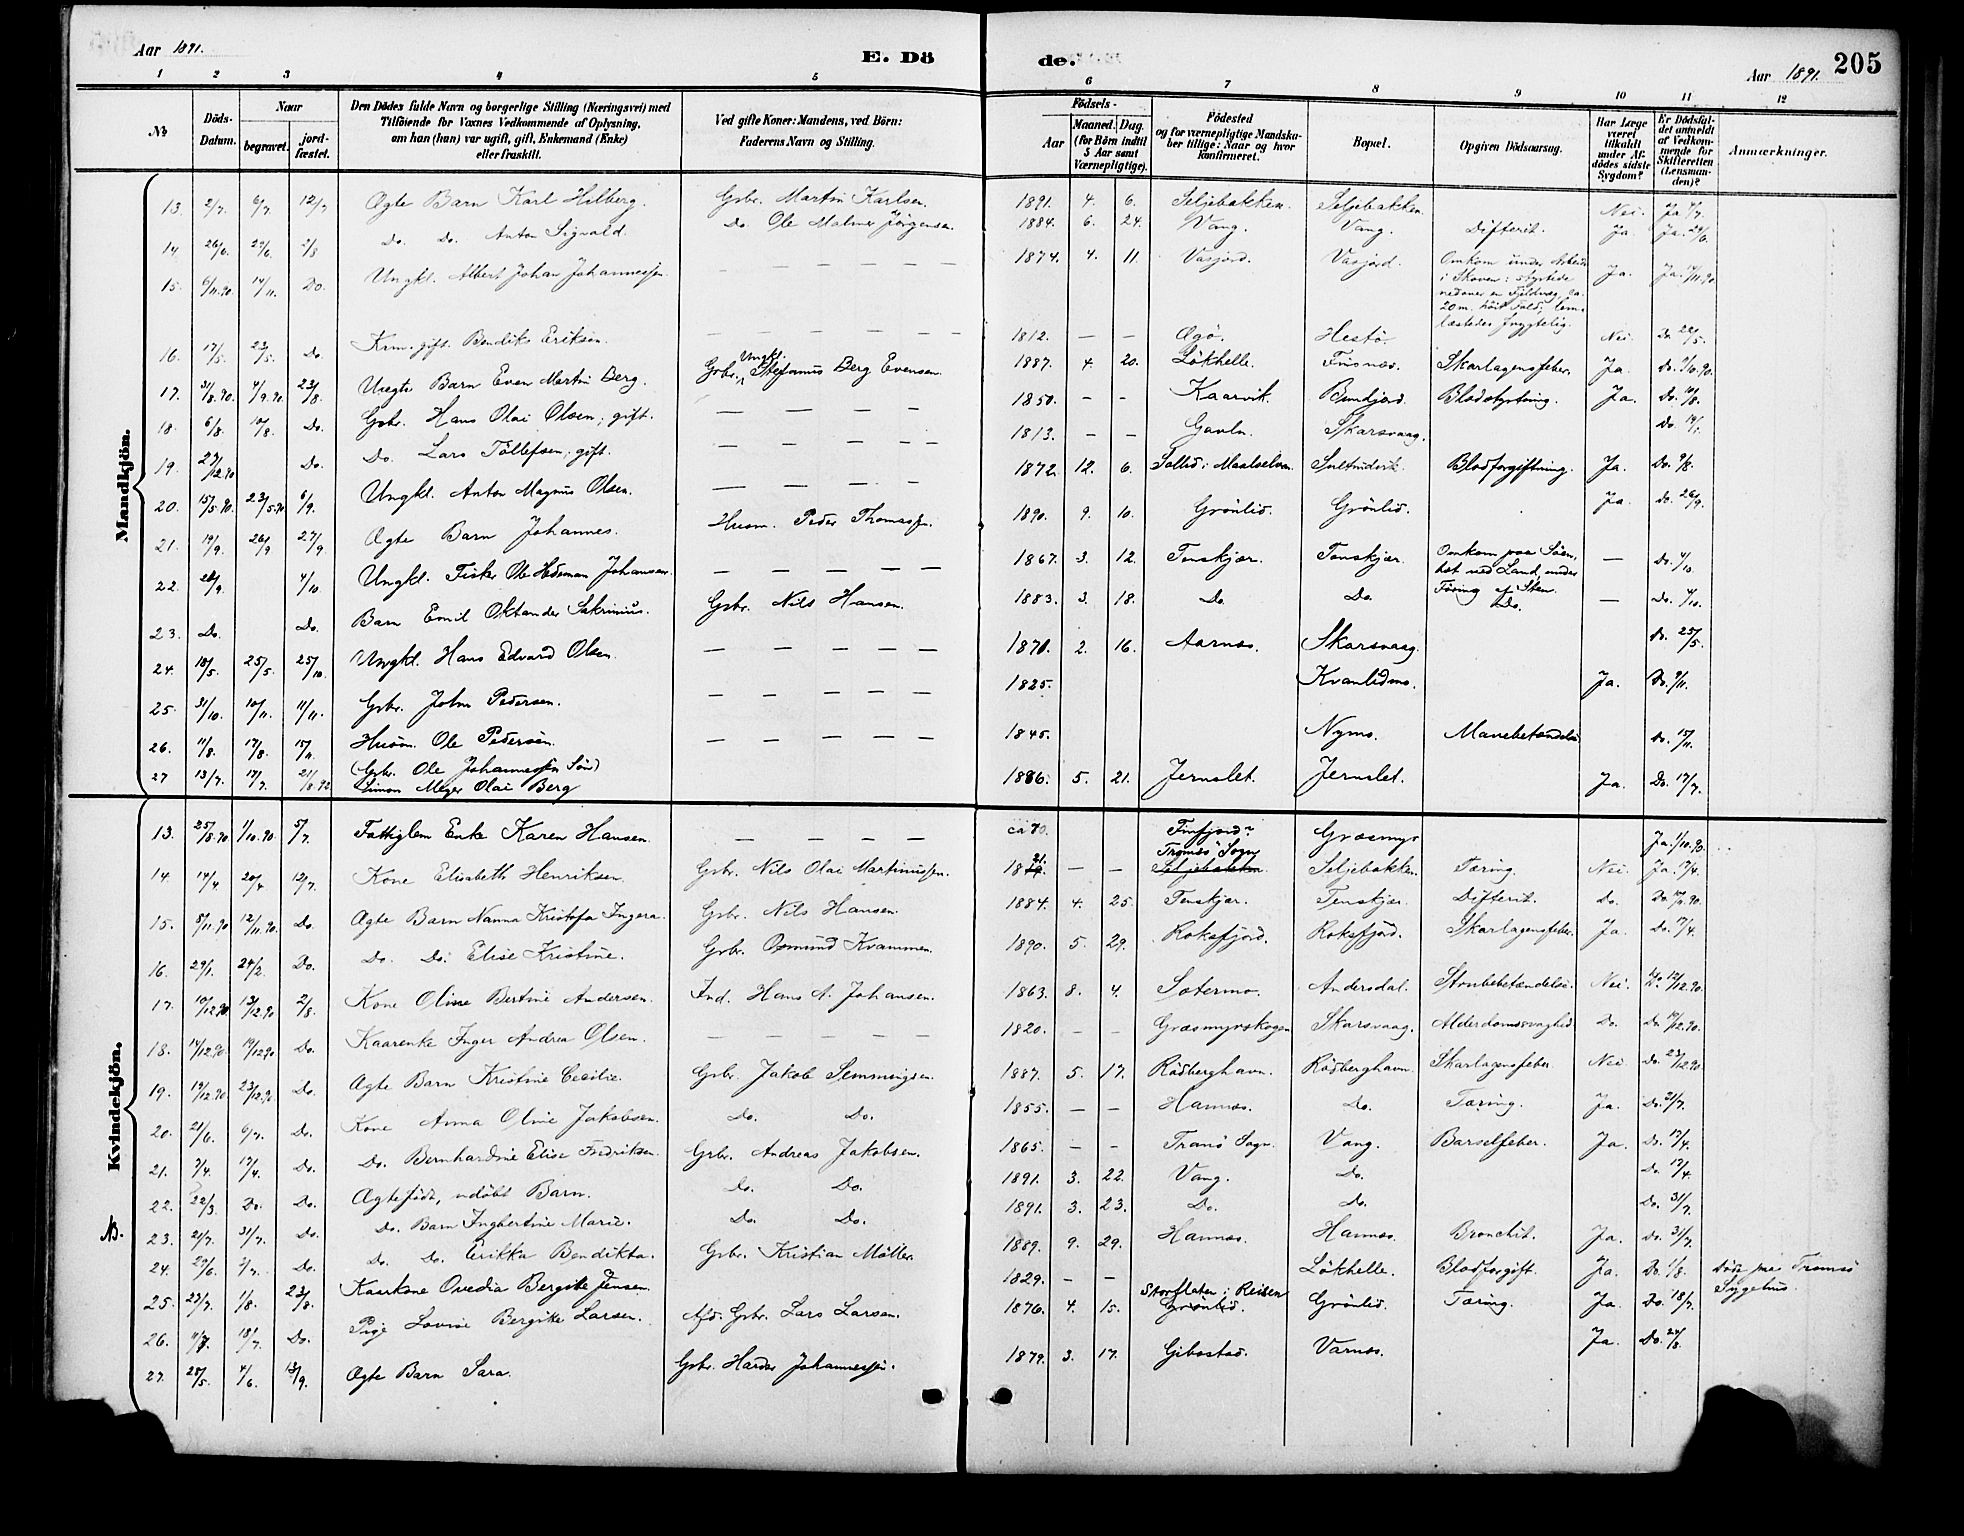 Aar 1891. E. Dö
de. Aar 1891. 205
1 2 3 4 5
6 7 8 9 10 11 12
No
Döds-Datum.
Naar
begravet.
jord-fæstet.
Den Dödes fulde Navn og borgerlige Stilling (Næringsvei) med
Tilföiende for Voxnes Vedkommende af Oplysning,
om han (hun) var ugift, gift, Enkemand (Enke)
eller fraskilt.
Ved gifte Koner: Mandens, ved Börn:
Faderens Navn og Stilling.
Födsels-
Aar
Maaned. Dag.
(for Börn indtil
5 Aar samt
Værnepligtige).
Födested
og for værnepligtige Mandska-
ber tillige: Naar og hvor
konfirmeret.
Bopæl.
Opgiven Dödsaarsag.
Har Læge
været
tilkaldt
under Af-
dödes sidste
Sygdom?
Er Dödsfal-
det anmeldt
af Vedkom-
mende for
Skifteretten
(Lensman-
den)?
Anmærkninger.
Mandkjön.
13. 2/7. 6/7. 12/7 Ægte Barn Karl Hilberg. Gbr. Martin Karlsen. 1891. 4. 6. Seljebakken. Seljebakken. Nei. Ja
14. 26/6. 29/6. 2/8 Do. Do. Anton Sigvald. Do. Ole Malmer Jörgensen. 1884. 6. 24. Vang. Vang. Difterit. Ja. Ja. 29/6.
15. 6/11.90. 14/11. Do. Ungkl. Albert Johan Johannessen — — — — — 1874. 4. 11. Vasjord. Vasjord. Omkom under Arbeide
i Skoven: styrtede
nedover en Fjeldvæg, ca.
20 m. höit Fald; lem-
læstedes frygtelig. Ja. Ja. 14/11.90.
16. 17/5. 23/5. Do. Krm. gift. Bendik Eriksen. — — — — — 1812. — — Hestö. Nei. Do. 22/5.
17. 31/8.90. 4/9.90 23/8. Uægte Barn Even Martin Berg. Gbr. Ungkl. Stefanus Berg Evensen. 1887. 4. 20. Lökhelle. Finsnæs. Skarlagensfeber. Ja.
18. 6/8. 10/8. Do. Gbr. Hans Olai Olsen, gift. — — — — 1850. — — Kaarvik. Bundjord. Blodstyrtning. Ja. Do. 10/8.
19. 27/12.90 Do. Do. Lars Tollefsen, gift. — — — — — 1813. — — Gavln. Skarsvaag.
20. 15/5.90. 23/5.90 6/9. Ungkl. Anton Magnus Olsen. — — — — 1872. 12. 6. Solli i Maalselven. Blodforgiftning. Ja.
21. 19/9. 26/9 27/9. Ægte Barn Johannes. Husm. Peder Thomassen. 1890. 9. 10. Grönlid. Grönlid. Ja. Do. 26/9.
22. 28/9. 4/10. Ungkl. Fisker Ole Hedeman Johansen. — — — — — 1867. 3. 12. Tenskjær. Tenskjær. Omkom paa Söen,
tæt ved Land, under
Föring af Sten. — Do. 4/10.
23. Do. Do. Barn Emil Oktander Sakrinius. Gbr. Nils Hansen. 1883. 3. 18. Do. Do. Do. — Do. 4/10.
24. 18/5. 25/5. 25/10. Ungkl. Hans Edvard Olsen. — — — — — 1870. 2. 16. Aarnæs. Skarsvaag. Do. 25/5.
25. 31/10. 10/11. 11/11. Gbr. Johan Pedersen. — — — — — 1825. Kvanlidmo. Ja. Do. 9/11.
26. 11/8. 17/8. 15/11. Husm. Ole Pedersen. — — — — — 1845. Nymo. Mavebetændelse Do. 15/11.
27 13/7. 17/7. 21/8.92 (Gbr. Ole Johannessen Sön)
Simon Meyer Olai Berg 1886. 5. 21. Jernslet. Jernslet. Ja. Do. 17/7.
Kvindekjön.
13. 25/8.90 1/10.90. 5/7. Fattiglem Enke Karen Hansen. — — — — ca 70. Finfjord? Græsmyr Ja. 1/10.90.
14. 14/4. 20/4. 12/7. Kone Elisabeth Henriksen. Gbr. Nils Olai Martinussen. 1821. — — Tromsö Sogn Seljebakken Seljebakken. Tæring. Nei. Ja. 17/4.
15. 5/11.90 12/11.90. Do. Ægte Barn Nanna Kristofa Ingera. Gbr. Nils Hansen. 1884. 4. 25. Tenskjær. Tenskjær. Difterit. Do.
16. 29/1. 24/2. Do. Do. Do. Elise Kristine. Gbr. Osmund Kvammen. 1890. 5. 29. Roksfjord. Roksfjord. Skarlagensfeber. Ja. Do. 17/4.
17. 10/12.90. 13/12.90 2/8. Kone Oline Bertine Andersen. Ind. Hans A. Johansen. 1863. 8. 4. Sætermo. Andersdal. Strubebetændelse. Nei. Do. 12/12.90.
18. 14/12.90. 19/12.90 Do. Kaarenke Inger Andrea Olsen. — — — — 1820. — — Græsmyrskogen Skarsvaag. Alderdomssvaghed Do. Do. 19/12.90.
19. 19/12.90 23/12.90 Do. Ægte Barn Kristine Cecilie. Gbr. Jakob Semmingsen. 1887. 5. 17. Rödberghavn. Rödberghavn. Skarlagensfeber. Nei. Do. 23/12.90.
20. 21/6. 6/7. Do. Kone Anna Oline Jakobsen. Do. Do. 1855. — — Hannæs. Do. Tæring. Ja. Do. 21/7.
21. 7/4. 17/4. Do. Do. Bernhardine Elise Fredriksen. Gbr. Andreas Jakobsen. 1865. — — Tranö Sogn. Vang. Barselfeber. Ja. Do. 17/4.
22. 22/3. Do. Do. Ægtefödt, udöbt Barn. Do. Do. 1891. 3. 22. Vang. Do. Do. 17/4.
23. 21/7. 31/7. Do. Do. Barn Ingbertine Marie. Do. Do. 1891. 3. 23. Do. Do. Do. 31/7.
24. 29/6. 2/7. Do. Do. Do. Erikka Bendikta. Gbr. Kristian Möller 1889. 9. 29. Hannæs. Hannæs. Bronchit. Ja. Do. 31/7.
25. 23/7. 1/8. 23/8. Kaarkone Ovedia Bergitte Jensen. 1829. — — Lökhelle. Blodforgift. Ja. Do. 1/8. Död paa Tromsö
Sygehus.
26. 18/7. Do. Pige Lovise Bergitte Larsen. Afd. Gbr. Lars Larsen. 1876. 4. 15. Storslæten i Reisen Grönlid. Grönlid. Tæring. Ja. Do. 18/7.
27. 28/5. 4/6. 13/9. Ægte Barn Sara. Gbr. Harder Johannessen. 1879. 3. 17. Gibostad. Varnæs. Ja. Do.